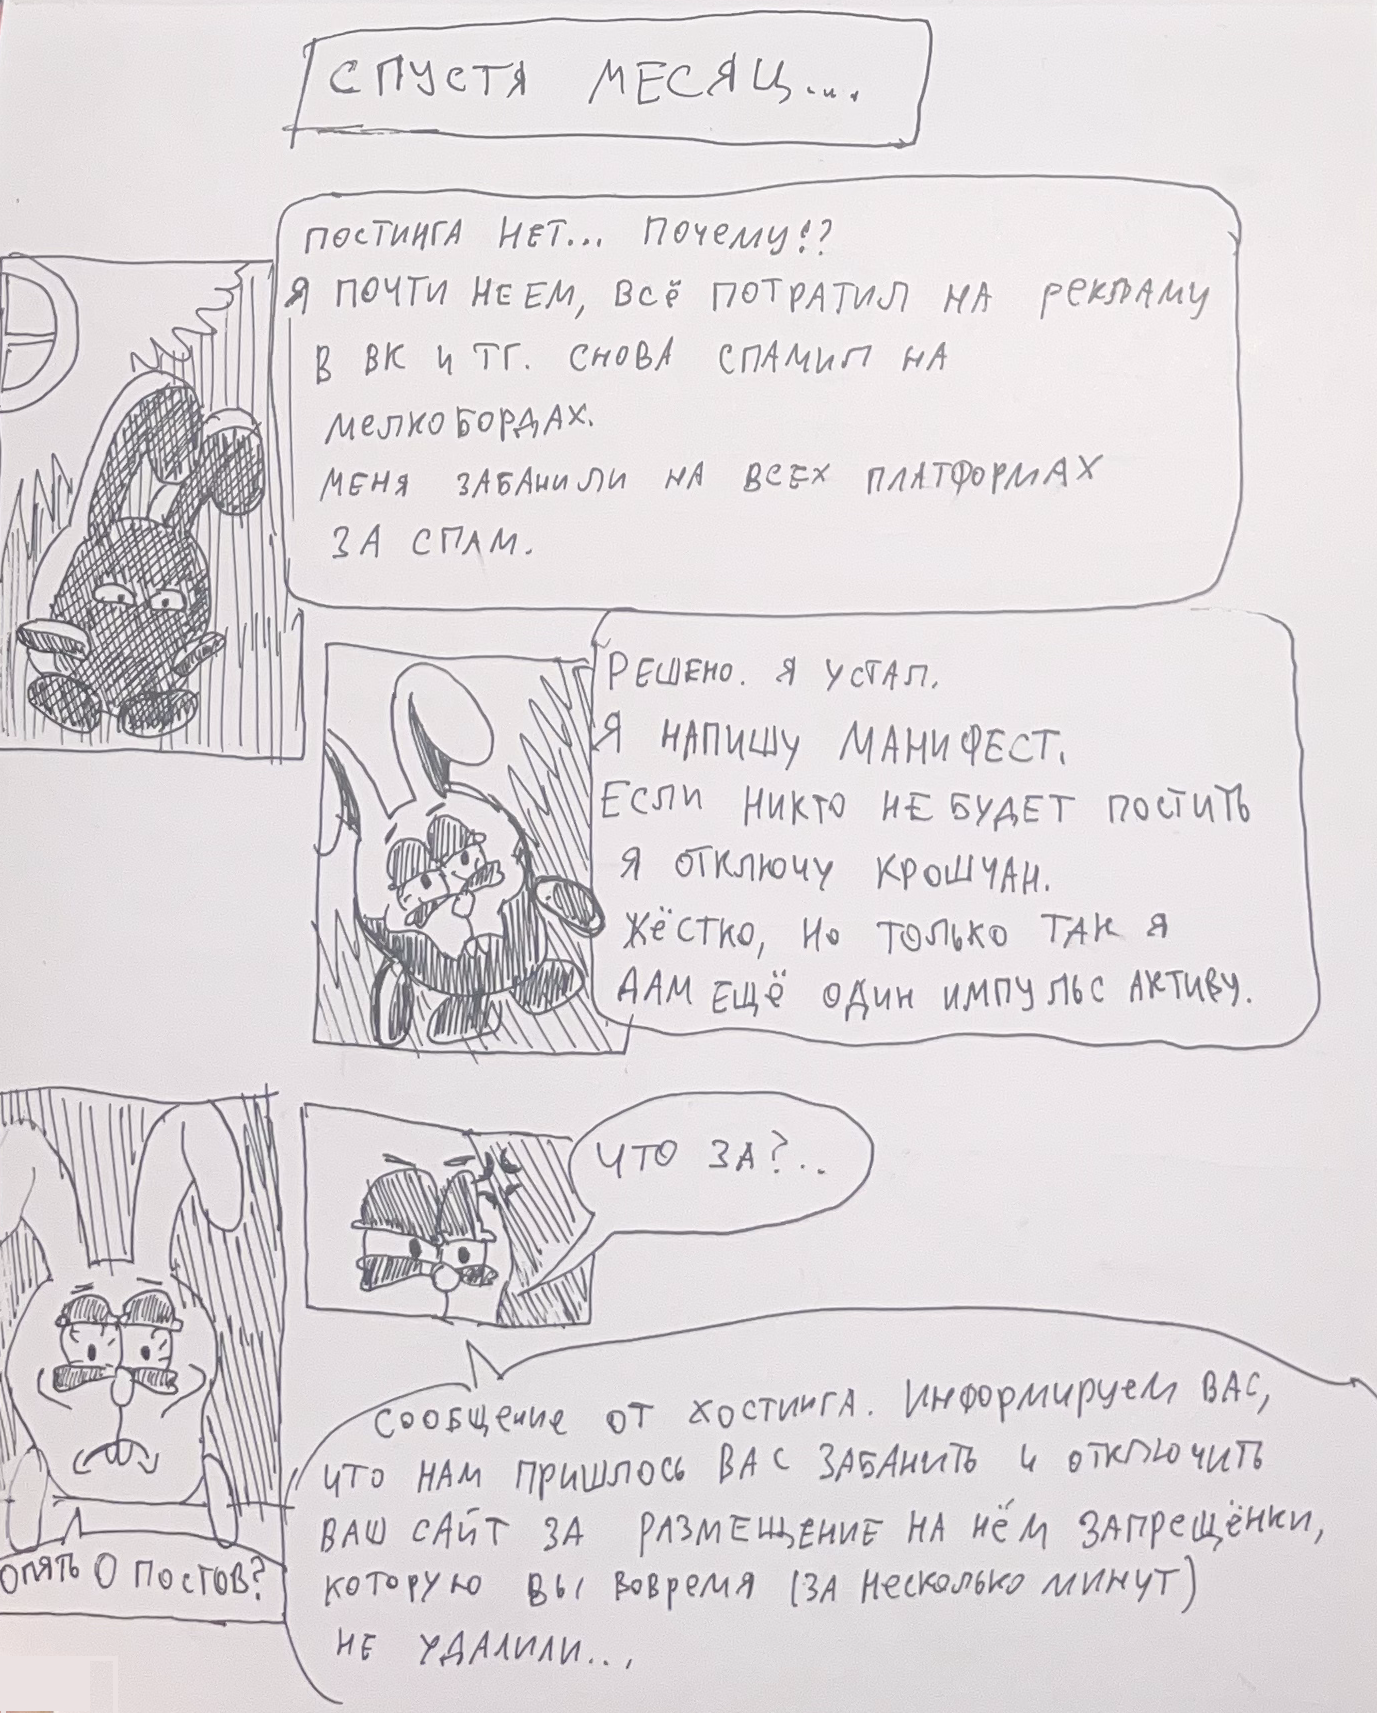 СПУСТЯ МЕСЯЦ...
ПОСТИНГА НЕТ... ПОЧЕМУ!?
Я ПОЧТИ НЕ ЕМ, ВСЁ ПОТРАТИЛ НА РЕКЛАМУ
В ВК И ТГ. СНОВА СПАМИЛ НА
МЕЛКОБОРДАХ.
МЕНЯ ЗАБАНИЛИ НА ВСЕХ ПЛАТФОРМАХ
ЗА СПАМ.
РЕШЕНО. Я УСТАЛ.
Я НАПИШУ МАНИФЕСТ.
ЕСЛИ НИКТО НЕ БУДЕТ ПОСТИТЬ
Я ОТКЛЮЧУ КРОШЧАН.
ЖЁСТКО, НО ТОЛЬКО ТАК Я
ДАМ ЕЩЁ ОДИН ИМПУЛЬС АКТИВУ.
ОПЯТЬ 0 ПОСТОВ?
ЧТО ЗА?..
СООБЩЕНИЕ ОТ ХОСТИНГА. ИНФОРМИРУЕМ ВАС,
ЧТО НАМ ПРИШЛОСЬ ВАС ЗАБАНИТЬ И ОТКЛЮЧИТЬ
ВАШ САЙТ ЗА РАЗМЕЩЕНИЕ НА НЁМ ЗАПРЕЩЁНКИ,
КОТОРУЮ ВЫ ВОВРЕМЯ (ЗА НЕСКОЛЬКО МИНУТ)
НЕ УДАЛИЛИ...